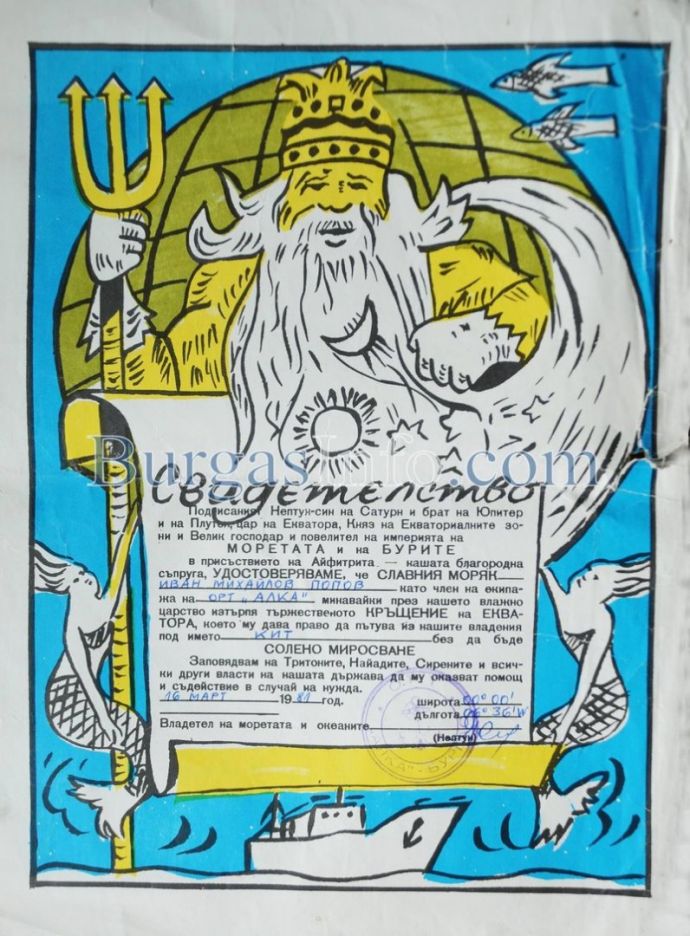 BurgasInfo.com
Свидетелство
Подписаният Нептун-син на Сатурн и брат на Юпитер
и на Плутон, цар на Екватора, Княз на Екваториалните зо-
ни и Велик господар и повелител на империята на
МОРЕТАТА и на БУРИТЕ
в присъствието на Айфитрита — нашата благородна
съпруга, УДОСТОВЕРЯВАМЕ, че СЛАВНИЯ МОРЯК
ИВАН МИХАИЛОВ ПОПОВ като член на екипа-
жа на ОРТ „АЛКА" минавайки през нашето влажно
царство изтърпя тържественото КРЪЩЕНИЕ на ЕКВА-
ТОРА, което му дава право да пътува из нашите владения
под името КИТ без да бъде
СОЛЕНО МИРОСВАНЕ
Заповядвам на Тритоните, Найадите, Сирените и всич-
ки други власти на нашата държава да му оказват помощ
и съдействие в случай на нужда.
16 МАРТ 1981 год. широта 00° 00'
дългота 06° 36' W
Владетел на моретата и океаните
(Нептун)
"АЛКА" - БУРГАС